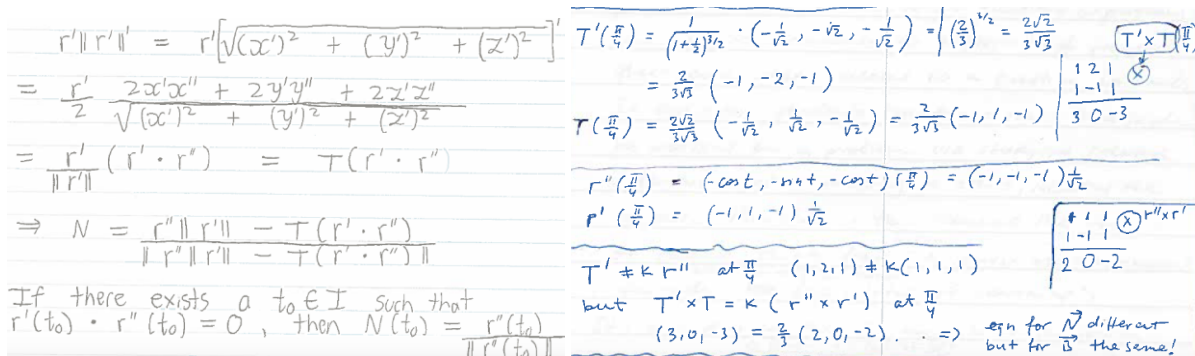 r'‖r'‖' = r'[√((x')² + (y')² + (z')²)]'
= r'/2 (2x'x" + 2y'y" + 2z'z")/√((x')² + (y')² + (z')²)
= r'/‖r'‖ (r' · r") = T(r' · r")
⇒ N = (r"‖r'‖ − T(r' · r"))/‖r"‖r'‖ − T(r' · r")‖
If there exists a t₀ ∈ I such that
r'(t₀) · r"(t₀) = 0, then N(t₀) = r"(t₀)/‖r"(t₀)‖
T'(π/4) = 1/(1+½)^(3/2) · (−1/√2, −√2, −1/√2) = | (2/3)^(3/2) = 2√2/3√3
= 2/3√3 (−1, −2, −1)
T(π/4) = 2√2/3√3 (−1/√2, 1/√2, −1/√2) = 2/3√3 (−1, 1, −1)
T'×T (π/4)
1 2 1 ⊗
1 −1 1
3 0 −3
r"(π/4) = (−cost, −sint, −cost)(π/4) = (−1, −1, −1) 1/√2
r'(π/4) = (−1, 1, −1) 1/√2
1 1 1 ⊗ r"×r'
1 −1 1
2 0 −2
T' ≠ K r" at π/4 (1, 2, 1) ≠ K(1, 1, 1)
but T'×T = K (r"×r') at π/4
(3, 0, −3) = 2/3 (2, 0, −2) . . ⇒ eqn for N⃗ different
but for B⃗ the same!